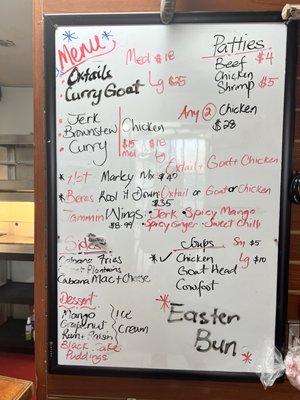 Menu
Patties
Oxtails
Med $18
Beef $4
Curry Goat
Lg $25
Chicken
Shrimp $5
Any 2 Chicken
$28
Jerk
Brownstew Chicken
Curry
$15 $18
med Lg
Oxtail + Goat + Chicken
Marley Mix $40
Beres Kool it Down: Oxtail or Goat or Chicken
$35
Tammin Wings: Jerk Spicy Mango
$8.99 Spicy Ginger Sweet Chilli
Sides
Cabana Fries
Plantains
Cabana Mac + Cheese
Soups Sm $5
Chicken Lg $10
Goat Head
Cowfoot
Dessert
Mango
Grapenut
Rum + Raisin
Ice
Cream
Black Cake
Puddings
Easter
Bun